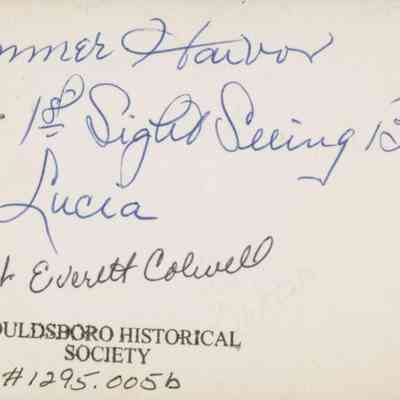 mmer Harbor
1st Sight Seeing B
Lucia
Everett Colwell
OULDSBORO HISTORICAL
SOCIETY
#1295.005b